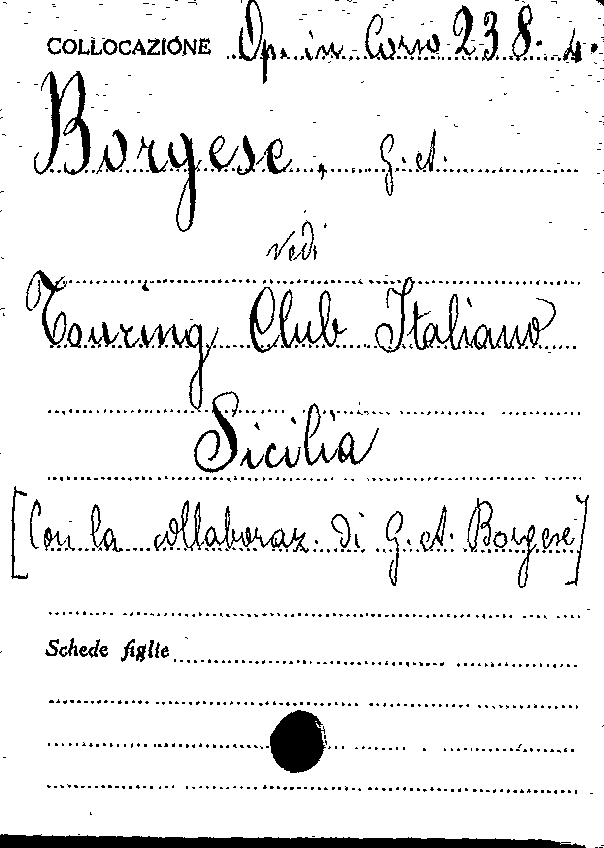 COLLOCAZIONE Op. in Corso 238. 4.
Borgese, G. A.
vedi
Touring Club Italiano
Sicilia
[Con la collaboraz. di G. A. Borgese]
Schede figlie